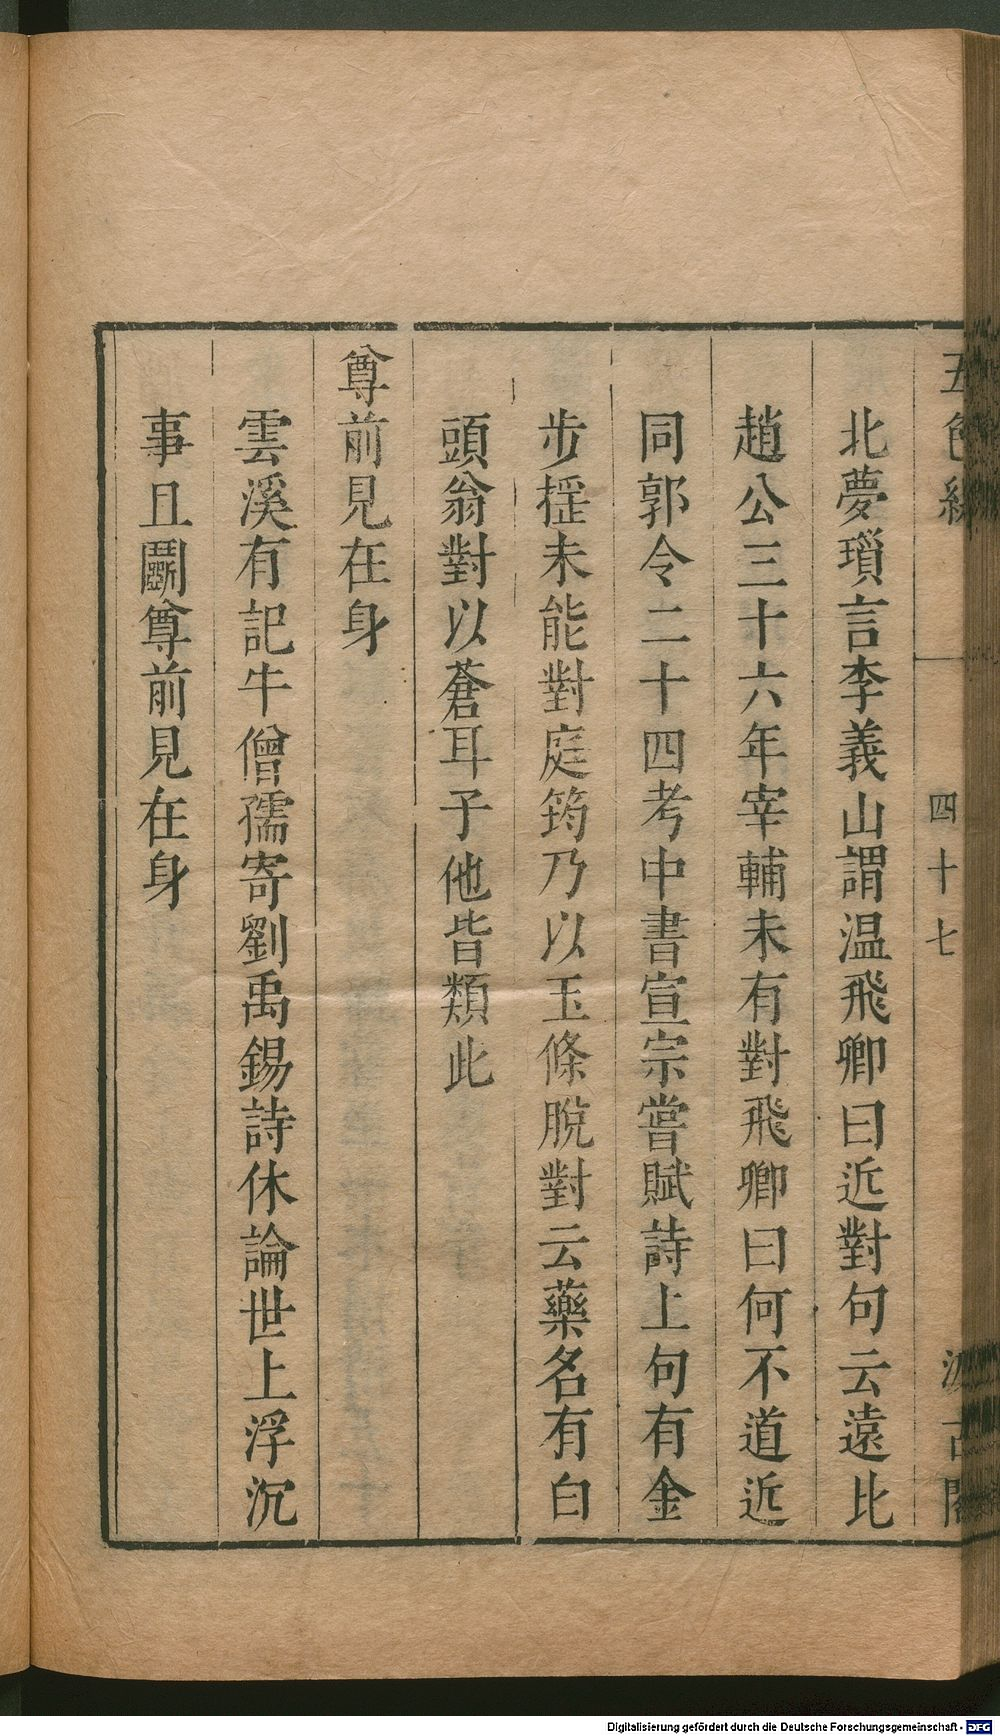 五色線
四十七
汲古閣
北夢瑣言李義山謂温飛卿曰近對句云遠比
趙公三十六年宰輔未有對飛卿曰何不道近
同郭令二十四考中書宣宗嘗賦詩上句有金
步揺未能對庭筠乃以玉條脫對云藥名有白
頭翁對以蒼耳子他皆類此
尊前見在身
雲溪有記牛僧孺寄劉禹錫詩休論世上浮沉
事且鬭尊前見在身
Digitalisierung gefördert durch die Deutsche Forschungsgemeinschaft - DFG